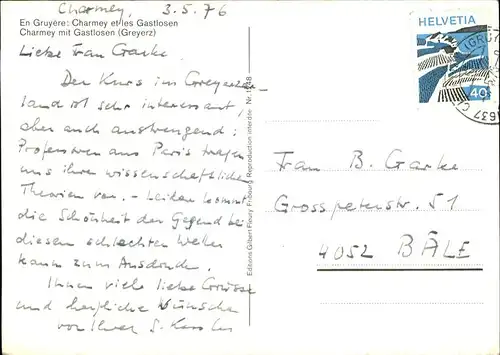 Charmey, 3.5.76
En Gruyère: Charmey et les Gastlosen
Charmey mit Gastlosen (Greyerz)
Liebe Frau Garke.
Der Kurs im Greyerzer-
land ist sehr interessant,
aber auch anstrengend:
Professoren aus Paris tragen
uns ihre wissenschaftlichen
Theorien vor. - Leider kommt
die Schönheit der Gegend bei
diesem schlechten Wetter
kaum zum Ausdruck.
Ihnen viele liebe Grüsse
und herzliche Wünsche
von Ihrer S. Kessler
Editions Gilbert Fleury Fribourg Reproduction interdite Nr.
HELVETIA
40
1637
Frau B. Garke
Grosspeterstr. 51
4052 BÂLE